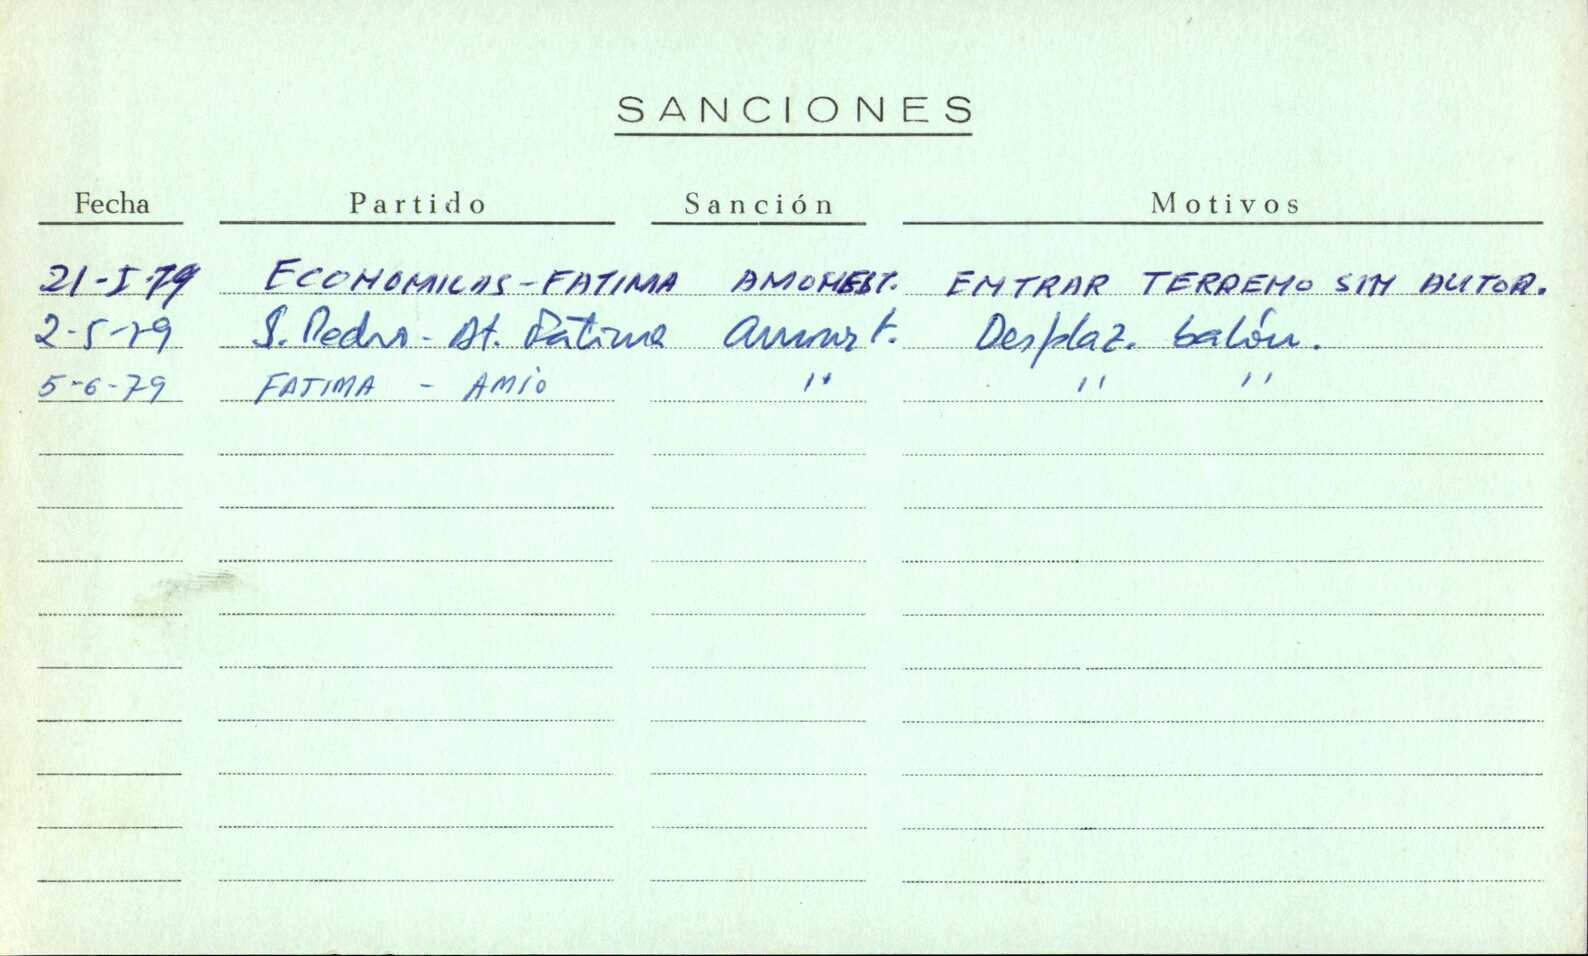 SANCIONES
Fecha Partido Sanción Motivos
21-I-79 ECONOMICAS-FATIMA AMONEST. ENTRAR TERRENO SIN AUTOR.
2-5-79 S. Pedro - At. Fátima Amonest. Desplaz. balón.
5-6-79 FATIMA - AMIO " " "